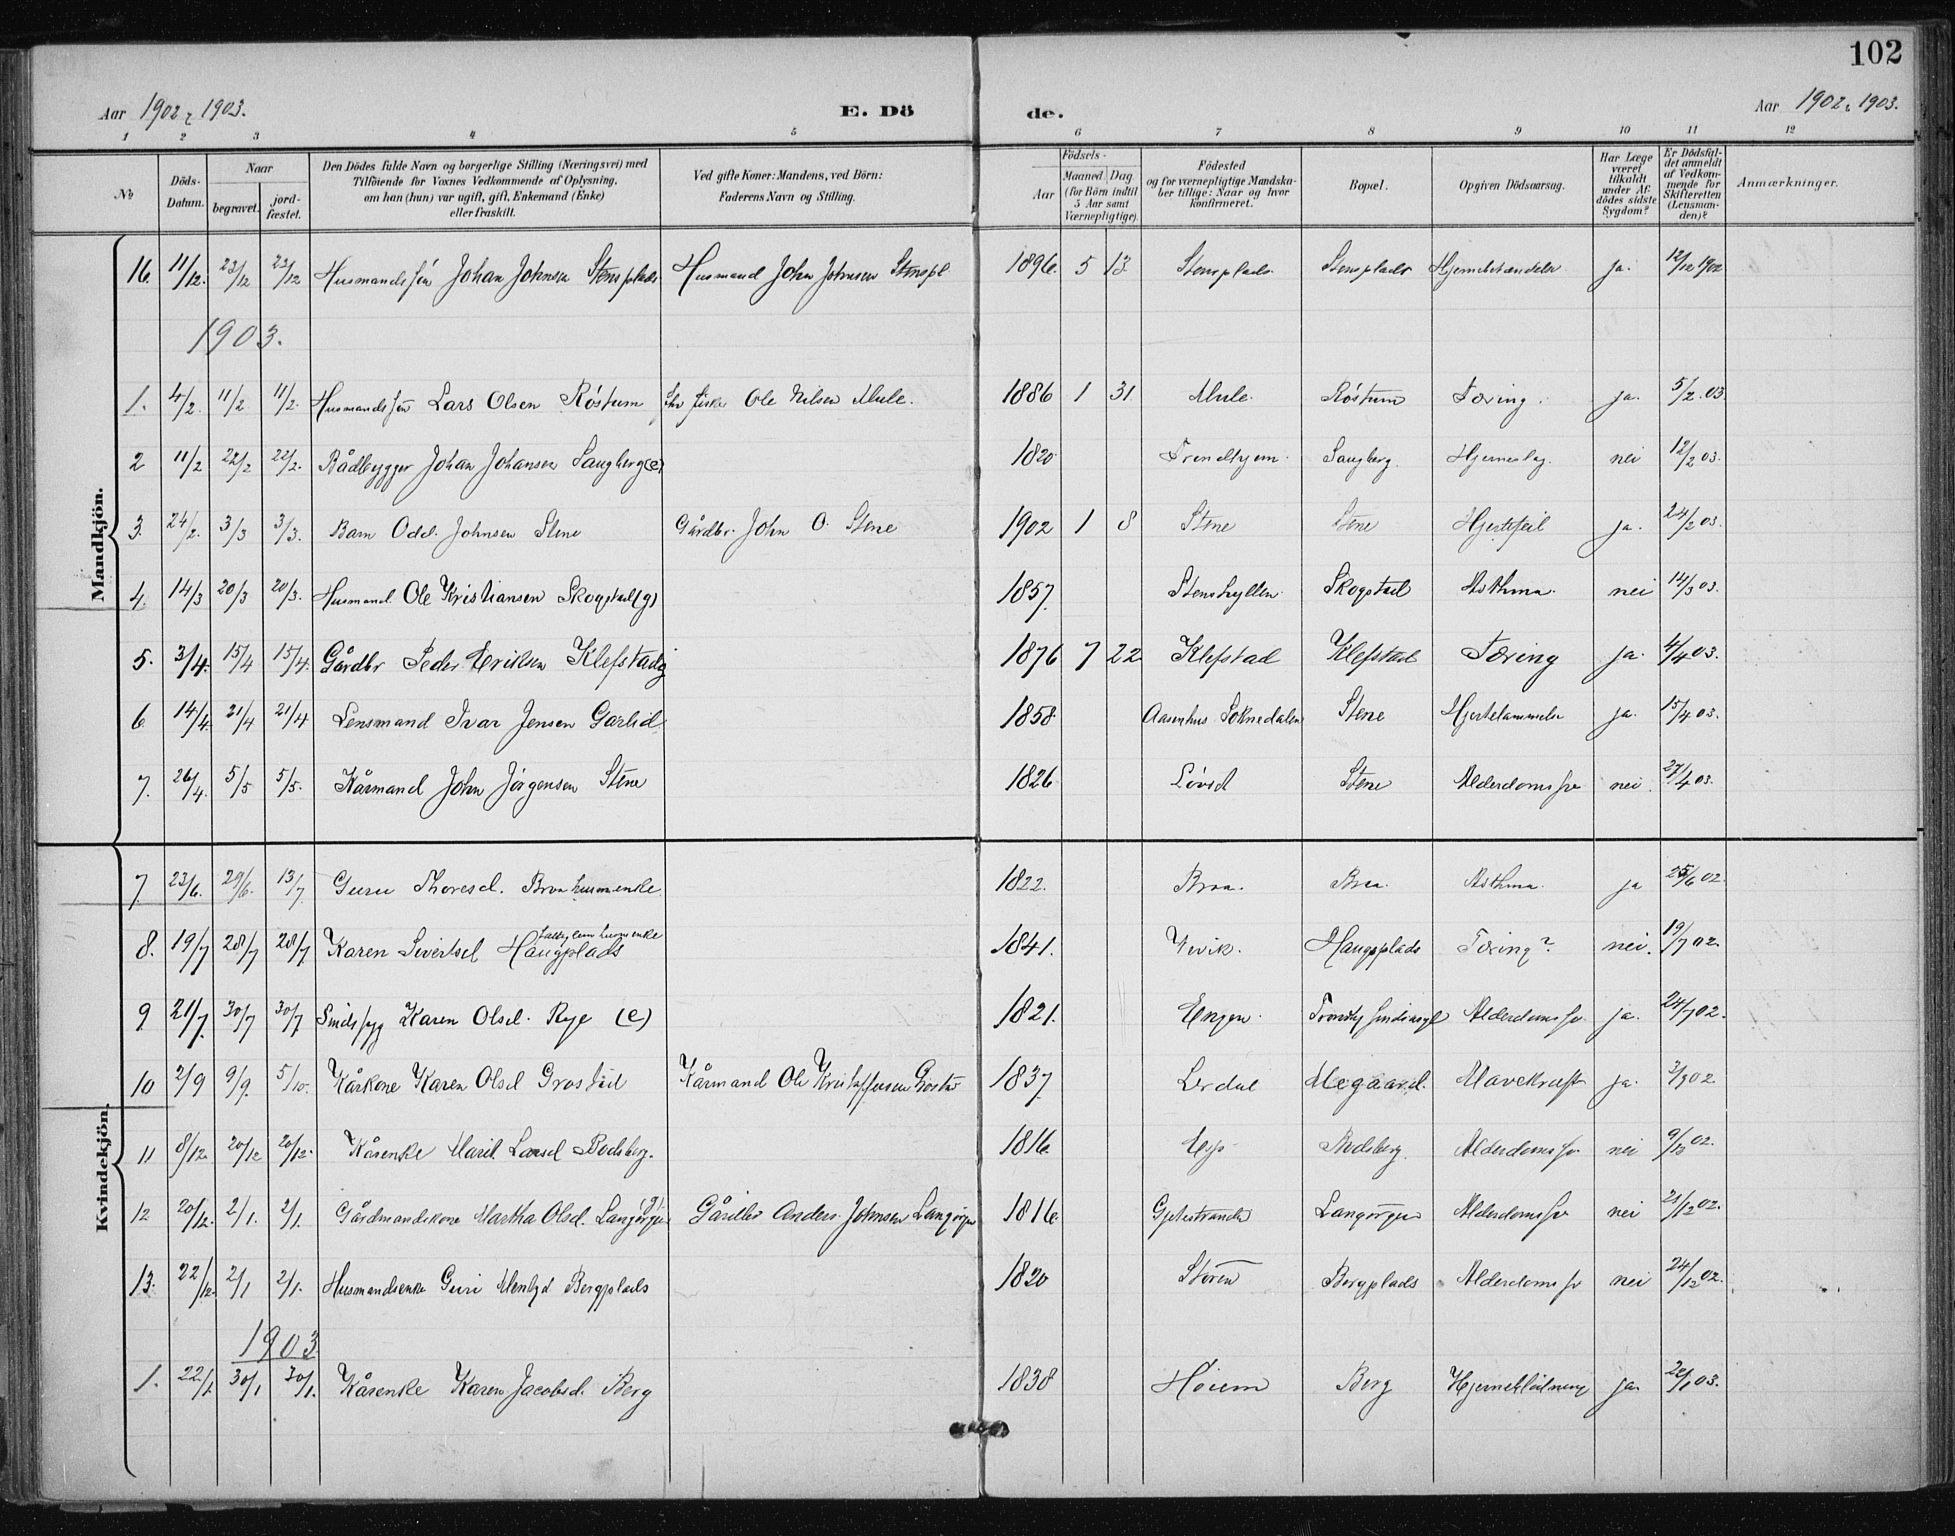 102
Aar 1902 & 1903. E. Dö de. Aar 1902 & 1903.
1 2 3 4 5 6 7 8 9 10 11 12
№
Döds-Datum.
Naar
begravet.
jord-fæstet.
Den Dödes fulde Navn og borgerlige Stilling (Næringsvei) med
Tilföiende for Voxnes Vedkommende af Oplysning,
om han (hun) var ugift, gift, Enkemand (Enke)
eller fraskilt.
Ved gifte Koner: Mandens, ved Börn:
Faderens Navn og Stilling.
Födsels-
Aar
Maaned Dag
(for Börn indtil
5 Aar samt
Værnepligtige).
Födested
og for værnepligtige Mandska-
ber tillige: Naar og hvor
konfirmeret.
Bopæl.
Opgiven Dödsaarsag.
Har Læge
været
tilkaldt
under Af-
dödes sidste
Sygdom?
Er Dödsfal-
det anmeldt
af Vedkom-
mende for
Skifteretten
(Lensman-
den)?
Anmærkninger.
Mandkjön.
16. 11/12. 23/12 23/12 Husmandssön Johan Johnsen Stensplads Husmand John Johnsen Stenspl 1896 5 13 Stensplads Stensplads Hjernebetændelse ja. 12/12 1902
1903.
1. 4/2. 11/2 11/2. Husmandssön Lars Olsen Röstum Ole Nilsen Mule. 1886 1 31 Mule. Röstum Tæring. ja. 5/2.03.
2 11/2 22/2 22/2. Bådbygger Johan Johansen Saugberg (e) 1820 Trondhjem. Saugberg. Hjerneslag. nei 12/2 03.
3. 24/2. 3/3 3/3. Barn Odd Johnsen Stene Gårdbr. John O. Stene 1902 1 8 Stene Stene Hjertefeil ja. 24/2 03.
4. 14/3 20/3 20/3. Husmand Ole Kristiansen Skogstad (g) 1857. Stenshyllen. Skogstad Asthma. nei 14/3 03.
5. 3/4. 15/4 15/4. Gårdbr Peder Eriksen Klefstad g 1876 7 22 Klefstad Klefstad Tæring ja. 4/4 03.
6 14/4. 21/4 21/4 Lensmand Ivar Jensen Garlid 1858 Aasenhus Soknedalen Stene Hjertelammelse ja. 15/4 03.
7. 26/4. 5/5 5/5. Kårmand John Jörgensen Stene 1826 Lövset Stene Alderdomssv nei. 27/4 03.
Kvindekjön.
7. 23/6. 29/6. 13/7 Guru Thoresd. Braa husmenke 1822. Braa. Braa. Asthma. ja 25/6 02.
8. 19/7 28/7 28/7 Karen Sivertsd Haugplads husmenke 1841. Vivik. Haugplads Tæring? nei. 19/7 02.
9 21/7. 30/7 30/7 Sindssyg Karen Olsd. Rye (e) 1821. Engen. Alderdomssv. ja. 24/7 02.
10 2/9 9/9. 5/10. Kårkone Karen Olsd Grostad Kårmand Ole Kristoffersen 1837. Lerdal Megaard. Mavekræft ja. 3/9 02
11 8/12. 20/12 20/12. Kårenke Marit Larsd Bodsberg. 1816 Esp Bodsberg. Alderdomssv. nei 9/12 02.
12 20/12. 2/1. 2/1. Gårdmandskone Martha Olsd. Langörgen (g) Gårdbr Anders Johnsen Langörgen 1816. Gjetestranden Langörgen Alderdomssv nei 21/12 02.
13. 22/12. 2/1 2/1. Husmandsenke Guri Bergplads 1820 Stören Bergplads Alderdomssv nei 24/12 02.
1903
1. 22/1. 30/1 30/1. Kårenke Karen Jacobsd. Berg 1838 Höiem Berg Hjerneblödning ja. 22/1 03.